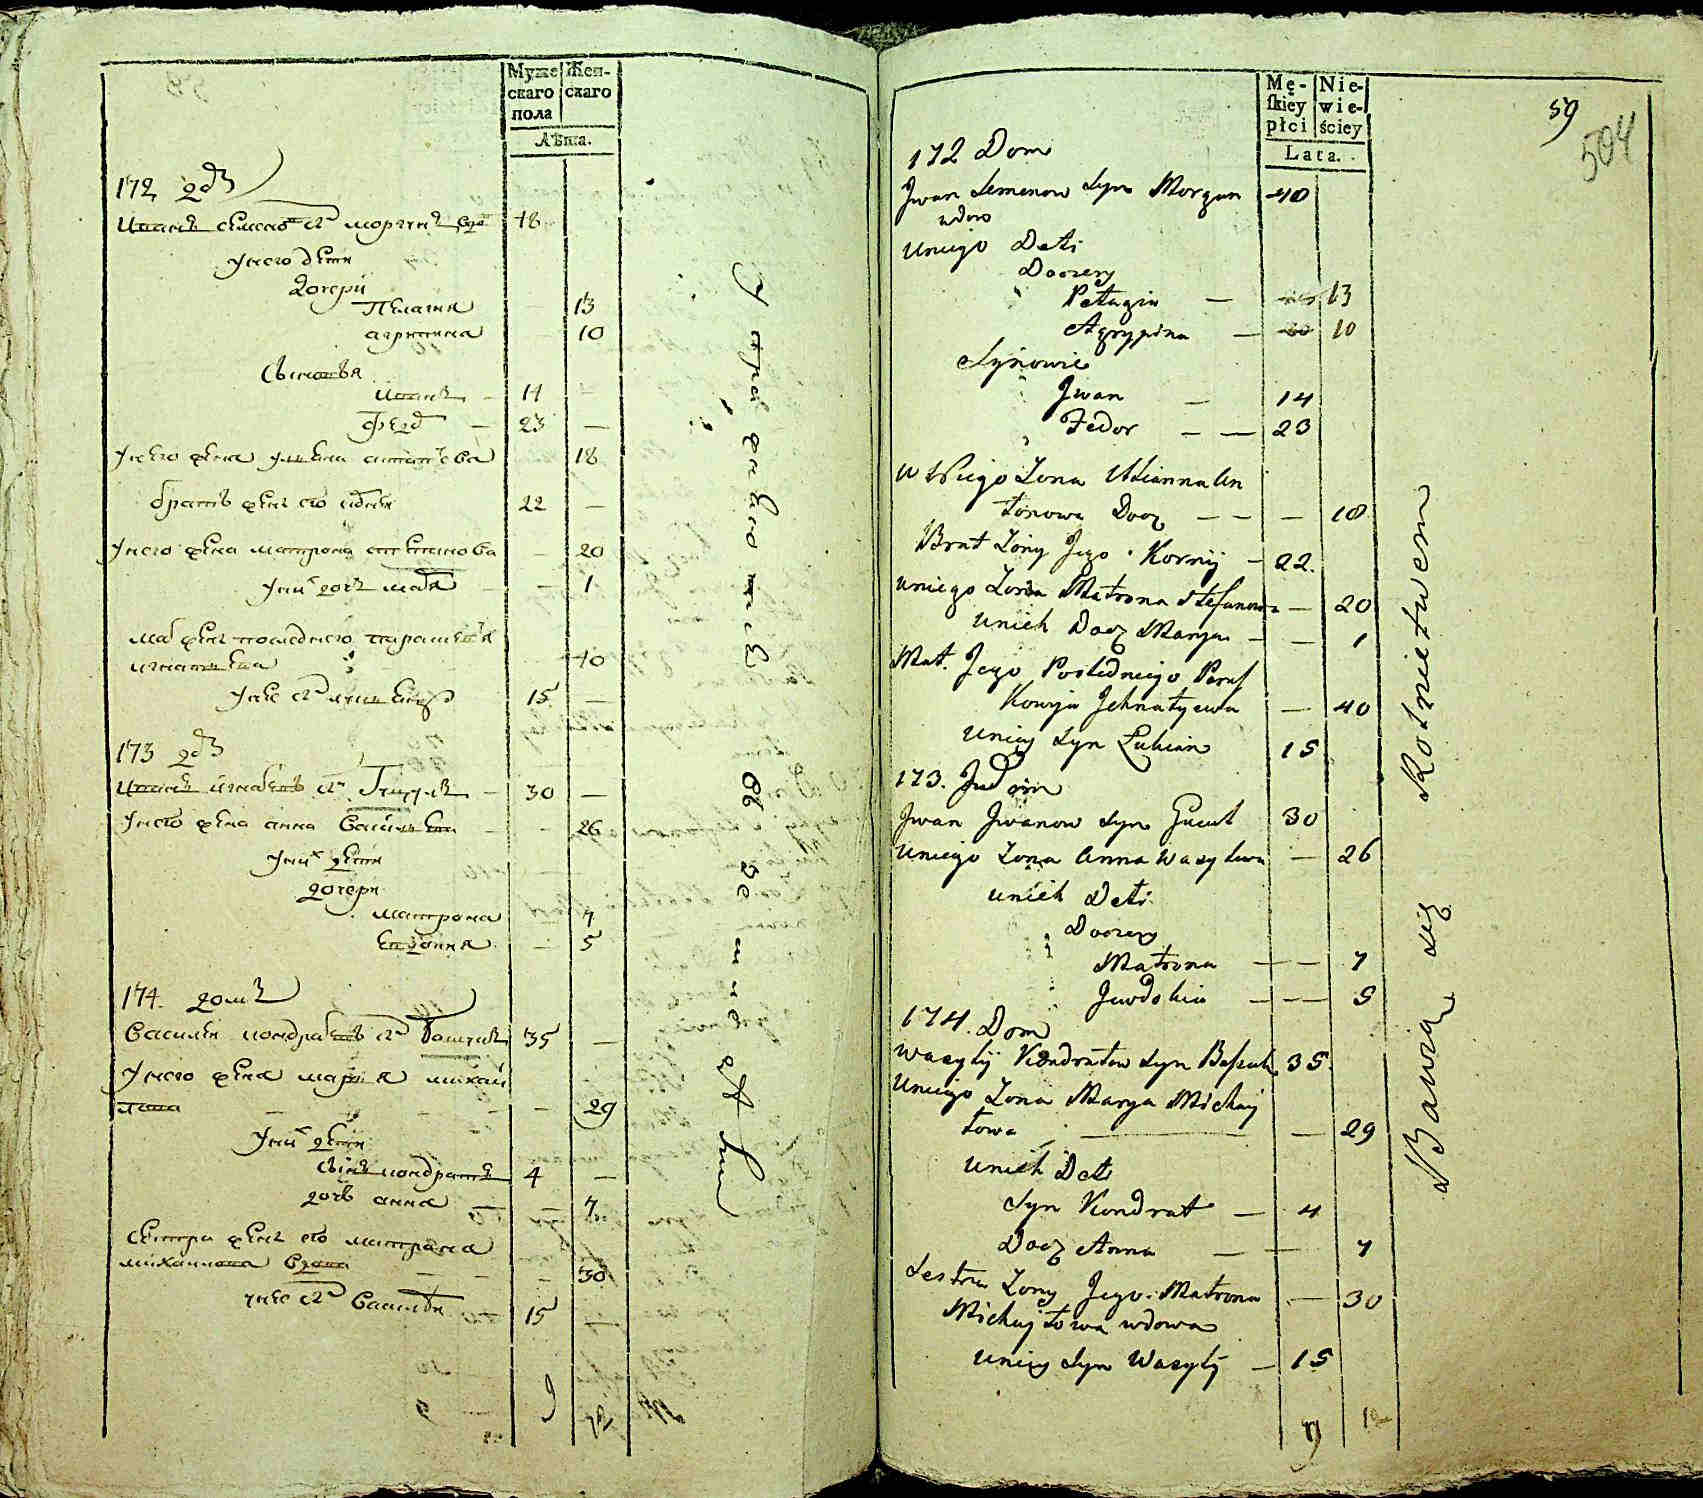 Муже
скаго
пола
Жен-
скаго
Лѣта.
172 двъ
Иванъ семеновъ снъ моргунъ вдовъ 48
у него дети
дочери
Пелагия 13
агрипина 10
Сыновья
Иванъ 14
Федоръ 23
у него жена ульяна антонова 18
братъ жены его корней 22
у него жена матрона стефанова 20
у них дочь марья 1
мать жены последнего параскевия
игнатиева 40
у нее снъ лукиянъ 15
173 двъ
Иванъ ивановъ снъ 30
у него жена анна васильева 26
у них дети
дочери
матрона 7
евдокия 5
174. домъ
Василий кондратовъ снъ 35
у него жена мария михай
лова 29
у них дети
сынъ кондратъ 4
дочь анна 7
сестра жены его матрона
михайлова вдова 30
у нее снъ василий 15
9
Mę-
skiey
płci
Nie-
wie-
ściey
Lata.
59
504
172 Dom
Jwan Semenow Syn Morgun 48
wdow
Uniego Deti
Doczery
Pełagia 13
Agrypina 10
Synowie
Jwan 14
Fedor 23
U tNiego Żona Ulianna An
tonowa Docz 18
Brat Żony Jego Korniy 22.
Uniego Żona Matrona Stefanowa 20
Unich Docz Marya 1
Mat. Jego Posledniego Paras
Kowija Jehnatyewa 40
Uniey Syn Łukian 15
173. Dom
Jwan Jwanow Syn 30
Uniego Żona Anna Wasylewa 26
Unich Deti
Doczery
Matrona 7
Jewdokia 5
174. Dom
Wasyly Kondratow Syn 35
Uniego Żona Marya Michay
łowa 29
Unich Deti
Syn Kondrat 4
Docz Anna 7
Sestra Żony Jego Matrona 30
Michayłowa wdowa
Uniey Syn Wasyly 15
9 12
Bawią się Rolnictwem